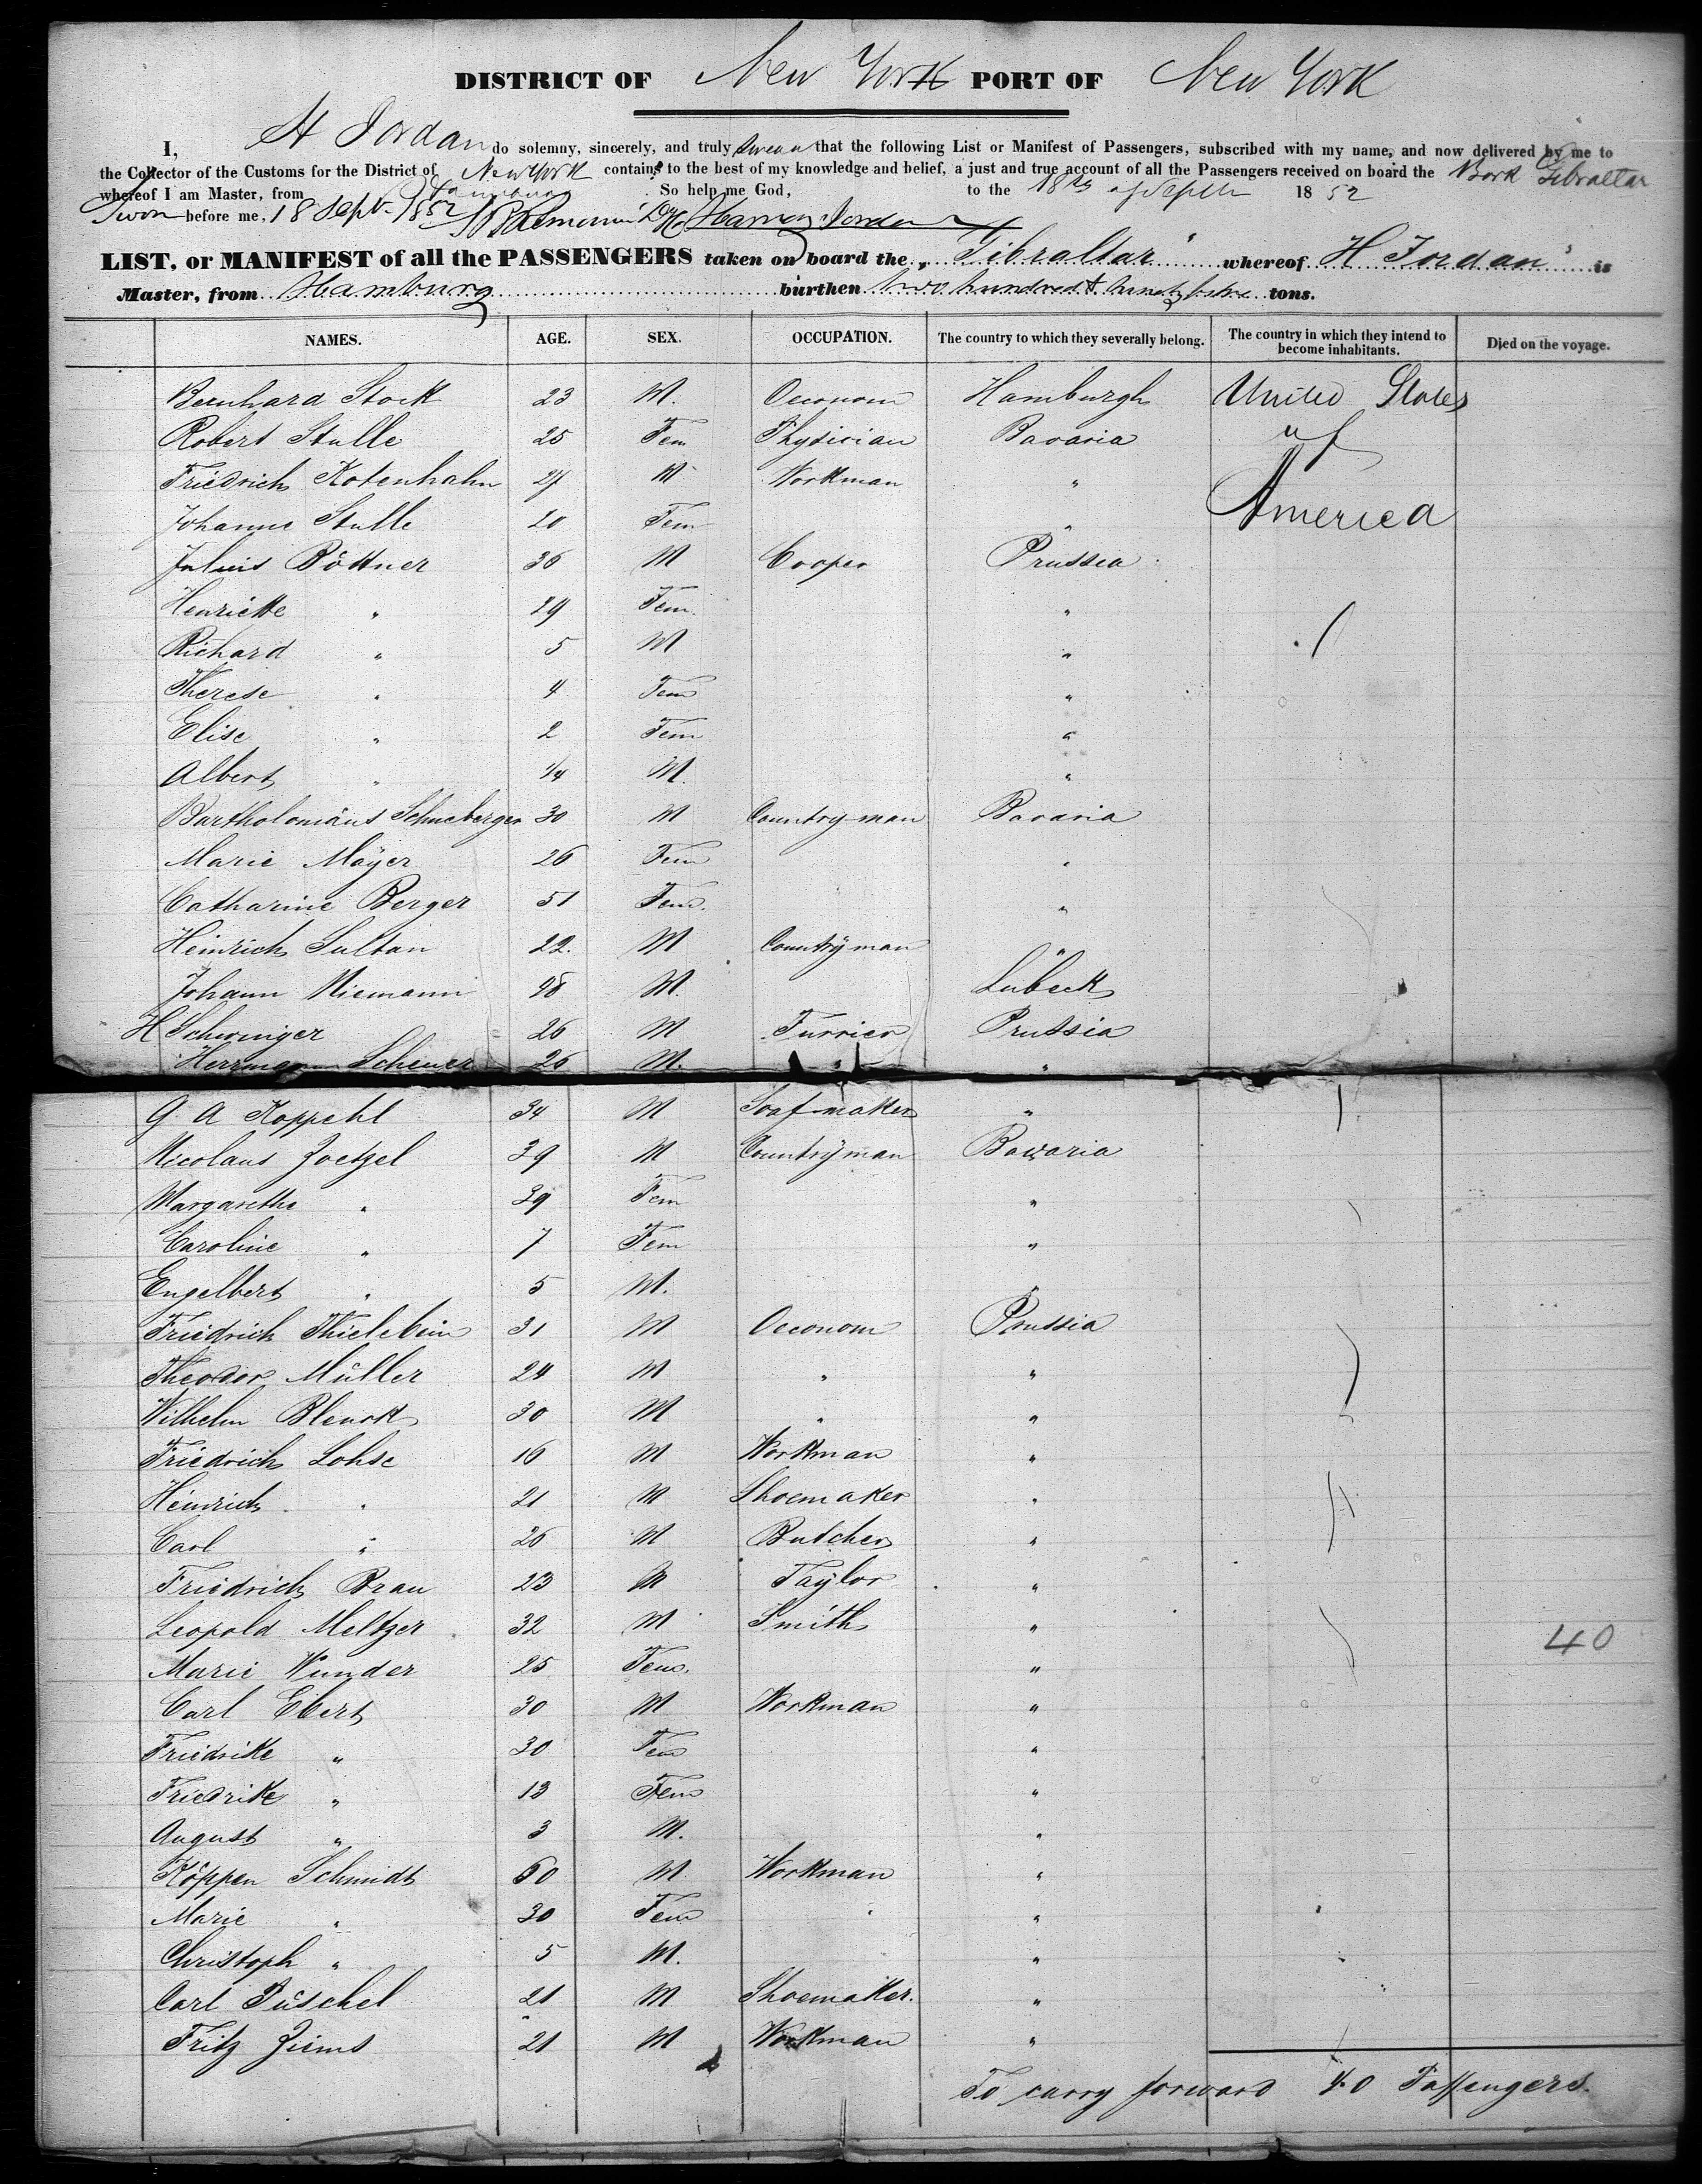 DISTRICT OF New York PORT OF New York
I, H Jordan do solemny, sincerely, and truly swear that the following List or Manifest of Passengers, subscribed with my name, and now delivered by me to
the Collector of the Customs for the District of New York contains to the best of my knowledge and belief, a just and true account of all the Passengers received on board the Bark Gibraltar
whereof I am Master, from Hamburg So help me God, to the 18th of Septbr 1852
Sworn before me, 18 Sept. 1852 Harmon Jordan
LIST, or MANIFEST of all the PASSENGERS taken on board the „Gibraltar" whereof H Jordan is
Master, from Hamburg burthen two hundred & tons.
NAMES. AGE. SEX. OCCUPATION. The country to which they severally belong. The country in which they intend to become inhabitants. Died on the voyage.
Bernhard Stock 23 M. Oeconom Hamburgh United States
Robert Stulle 25 Fem Physician Bavaria of
Friedrich Rotenhahn 27 M Workman " America
Johanne Stulle 20 Fem "
Julius Böttner 36 M Cooper Prussia
Henriette " 29 Fem. "
Richard " 5 M "
Therese " 4 Fem "
Elise " 2 Fem "
Albert " 1/4 M. "
Bartholomäus Schneberger 30 M Country-man Bavaria
Marie Mayer 26 Fem "
Catharine Berger 51 Fem. "
Heinrich Sultan 22. M Countryman "
Johann Niemann 28 M. Lübeck
H Schwinger 26 M Furrier Prussia
Herrmann Scheuer 26 M. " "
G A Koppehl 34 M Soapmaker "
Nicolaus Zoetzel 39 M Countryman Bavaria
Margarethe " 39 Fem "
Caroline " 7 Fem "
Engelbert " 5 M. "
Friedrich Thielebein 31 M Oeconom Prussia
Theodor Müller 24 M " "
Wilhelm Blenck 30 M " "
Friedrich Lohse 16 M Workman "
Heinrich " 21 M Shoemaker "
Carl " 26 M Butcher "
Friedrich Brau 23 M Taylor "
Leopold Meltzer 32 M Smith "
40
Marie Wunder 25 Fem. "
Carl Ebert 30 M Workman "
Friedrike " 30 Fem "
Friedrike " 13 Fem "
August " 3 M. "
Köppen Schmidt 60 M Workman "
Marie " 30 Fem "
Christoph " 5 M. "
Carl Püschel 21 M Shoemaker. "
Fritz Ziems 21 M Workman "
To carry forward 40 Passengers.